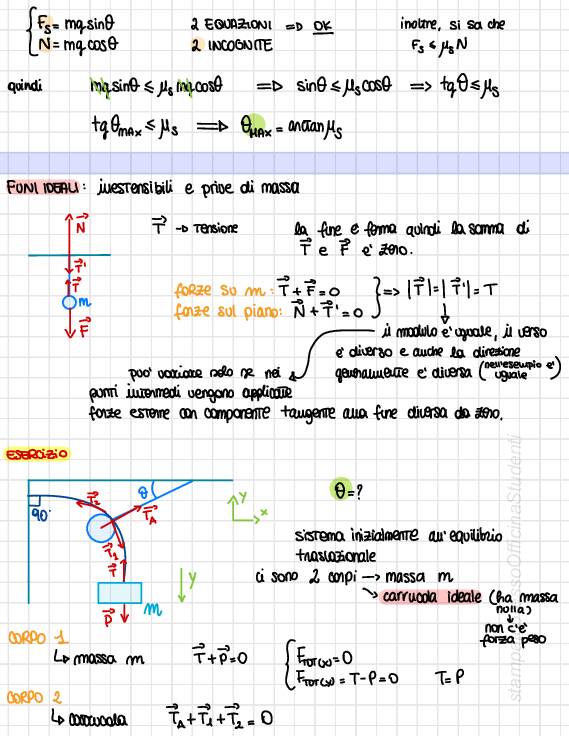 Fs = mg sinθ 2 EQUAZIONI => OK inoltre, si sa che
N = mg cosθ 2 INCOGNITE Fs ≤ μs N
quindi mg sinθ ≤ μs mg cosθ => sinθ ≤ μs cosθ => tgθ ≤ μs
tg θMAX ≤ μs => θMAX = arctan μs
FUNI IDEALI: inestensibili e prive di massa
N
T → Tensione
la fune è ferma quindi la somma di
T e F è zero.
T'
T
m
F
forze su m: T + F = 0
forze sul piano: N + T' = 0
=> |T| = |T'| = T
il modulo è uguale, il verso
è diverso e anche la direzione
generalmente è diversa (nell'esempio è
uguale)
può variare solo se nei
punti intermedi vengono applicate
forze esterne con componente tangente alla fune diversa da zero.
ESERCIZIO
90°
T2
θ
TA
T1
T
P
m
y
x
y
θ = ?
sistema inizialmente all'equilibrio
traslazionale
ci sono 2 corpi → massa m
carrucola ideale (ha massa
nulla)
non c'è
forza peso
CORPO 1
massa m T + P = 0
FTOT(x) = 0
FTOT(y) = T - P = 0 T = P
CORPO 2
carrucola TA + T1 + T2 = 0